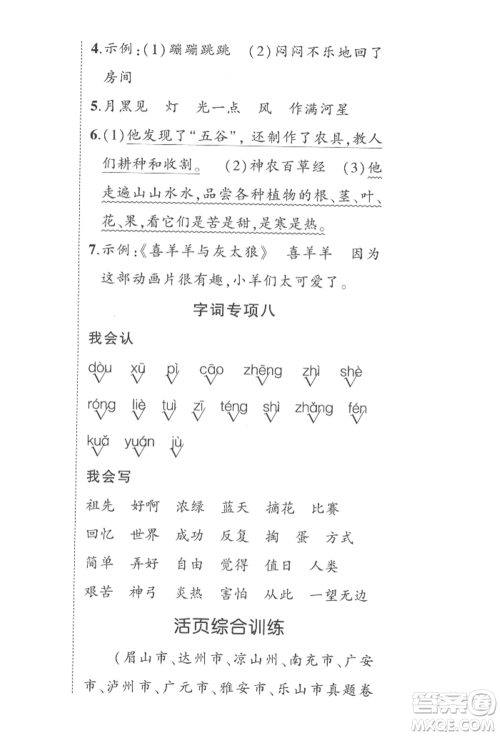 4.示例:(1)蹦蹦跳跳 (2)闷闷不乐地回了
房间
5.月黑见 灯 光一点 风 作满河星
6.(1)他发现了“五谷”,还制作了农具,教人
们耕种和收割。 (2)神农百草经 (3)他
走遍山山水水,品尝各种植物的根、茎、叶、
花、果,看它们是苦是甜,是寒是热。
7.示例:《喜羊羊与灰太狼》 喜羊羊 因为
这部动画片很有趣,小羊们太可爱了。
字词专项八
我会认
dòu xū pì cāo zhēng zhì shè
róng liè tuì zī téng shì zhǎng fén
kuǎ yuán jù
我会写
祖先 好啊 浓绿 蓝天 摘花 比赛
回忆 世界 成功 反复 掏 蛋 方式
简单 弄好 自由 觉得 值日 人类
艰苦 神弓 炎热 害怕 从此 一望无边
活页综合训练
(眉山市、达州市、凉山州、南充市、广安
市、泸州市、广元市、雅安市、乐山市真题卷
答案圈
MXQE.COM